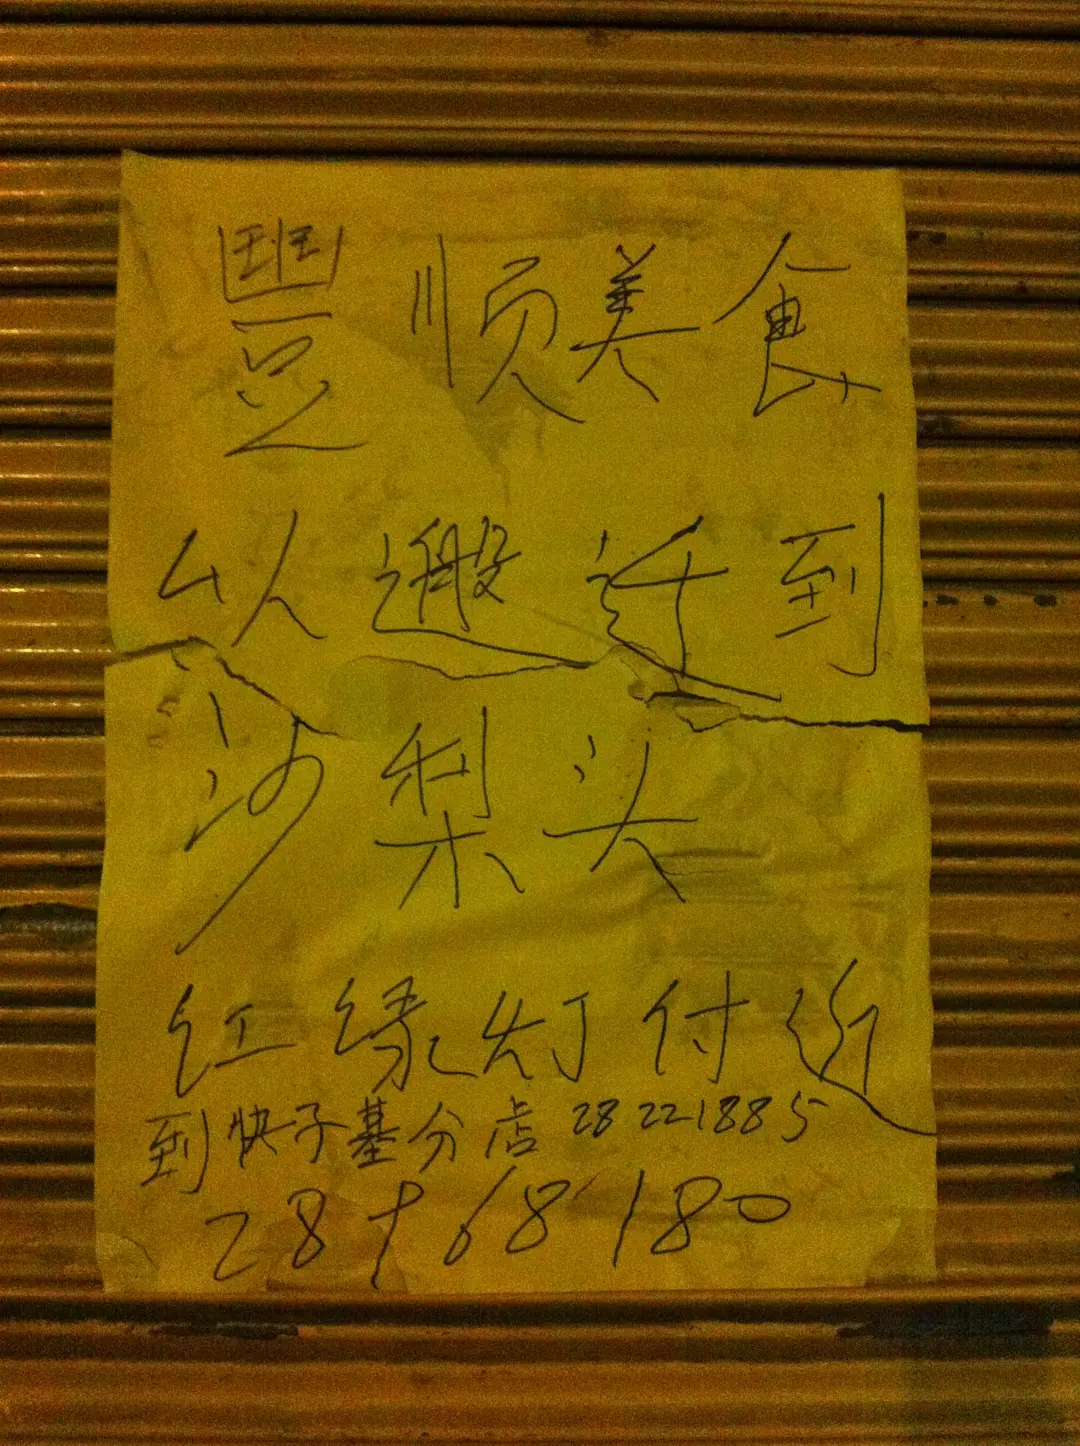 豐顺美食
以搬迁到
沙梨头
红绿灯付近
到快子基分店 28221885
28968180